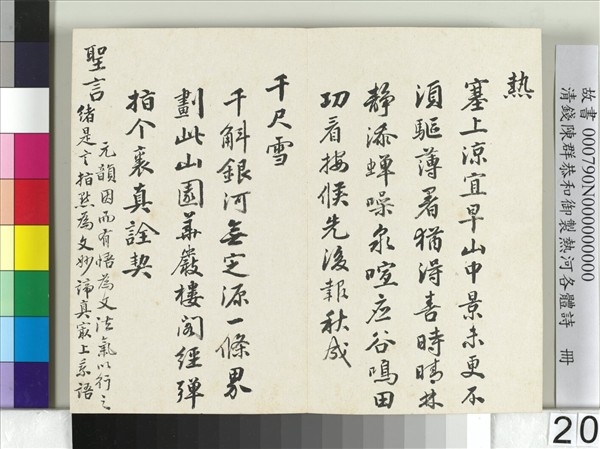 故書 000790N000000000
清錢陳群恭和御製熱河各體詩 冊
熱
塞上涼宜早山中景未更不
須驅薄暑猶得喜時晴林
靜添蟬噪泉喧應谷鳴田
功看按候先後報秋成
千尺雪
千斛銀河無定源一條界
劃此山園華嚴樓閣經彈
指个裏真詮契
聖言
元韻因而有悟為文法氣以行之
緒是之指點為文妙諦真最上乘語
20